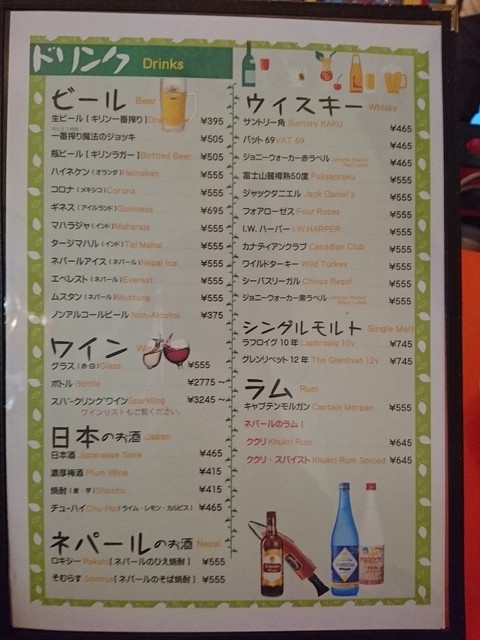 ドリンク Drinks
ビール Beer
生ビール [キリン一番搾り] ¥395
一番搾り魔法のジョッキ ¥505
瓶ビール [キリンラガー] Bottled Beer ¥505
ハイネケン (オランダ) Heineken ¥555
コロナ (メキシコ) Corona ¥555
ギネス (アイルランド) Guinness ¥695
マハラジャ (インド) Maharaja ¥555
タージマハル (インド) Taj Mahal ¥555
ネパールアイス (ネパール) Nepal Ice ¥555
エベレスト (ネパール) Everest ¥555
ムスタン (ネパール) Mustang ¥555
ノンアルコールビール Non-Alcohol ¥375
ワイン
グラス (赤·白) Glass ¥555
ボトル Bottle ¥2775 ~
スパークリングワイン Sparkling ¥3245 ~
ワインリストもご覧ください。
日本のお酒 Japan
日本酒 Japanese Sake ¥465
濃厚梅酒 Plum Wine ¥415
焼酎 (麦·芋) Shochu ¥415
チューハイ Chu-Hai (ライム·レモン·カルピス) ¥465
ネパールのお酒 Nepal
ロキシー Rakshi [ネパールのひえ焼酎] ¥555
そむらす Somrus [ネパールのそば焼酎] ¥555
ウイスキー Whisky
サントリー角 Suntory KAKU ¥465
バット 69 VAT 69 ¥465
ジョニーウォーカー赤ラベル Johnnie Walker Red Label ¥465
富士山麓樽熟50度 Fujisanroku ¥555
ジャックダニエル Jack Daniel's ¥555
フォアローゼス Four Roses ¥555
I.W. ハーパー I.W.HARPER ¥555
カナディアンクラブ Canadian Club ¥555
ワイルドターキー Wild Turkey ¥555
シーバスリーガル Chivas Regal ¥555
ジョニーウォーカー黒ラベル Johnnie Walker Black Label ¥555
シングルモルト Single Malt
ラフロイグ 10 年 Laphroaig 10y ¥745
グレンリベット 12 年 The Glenlivet 12y ¥745
ラム Rum
キャプテンモルガン Captain Morgan ¥555
ネパールのラム！
ククリ Khukri Rum ¥645
ククリ·スパイスト Khukri Rum Spiced ¥645